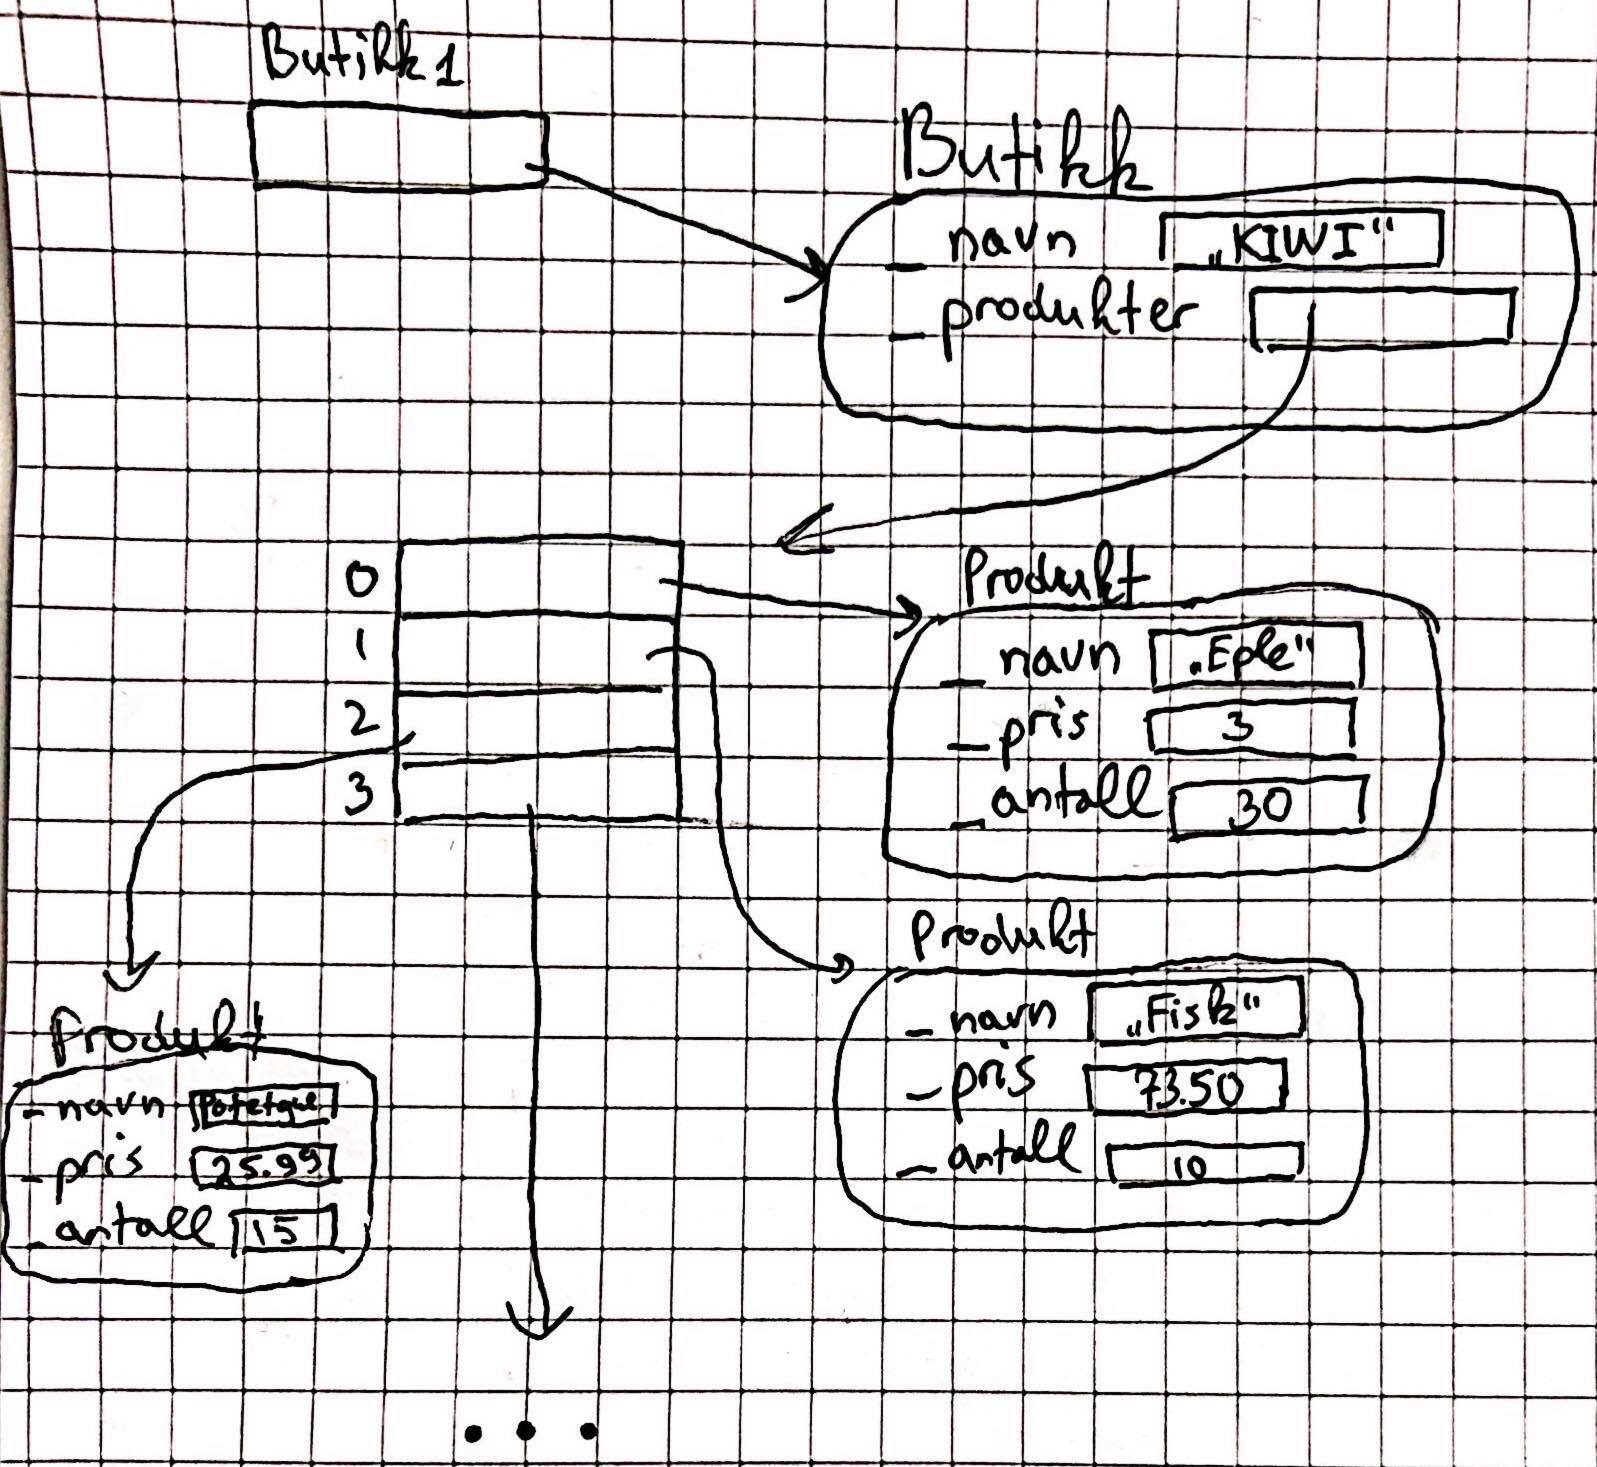 Butikk1
Butikk
_ navn „KIWI“
_ produkter
0
1
2
3
Produkt
_ navn „Eple“
_ pris 3
_ antall 30
Produkt
_ navn „Fisk“
_ pris 73.50
_ antall 10
Produkt
_ navn
_ pris 25.99
_ antall 15
...